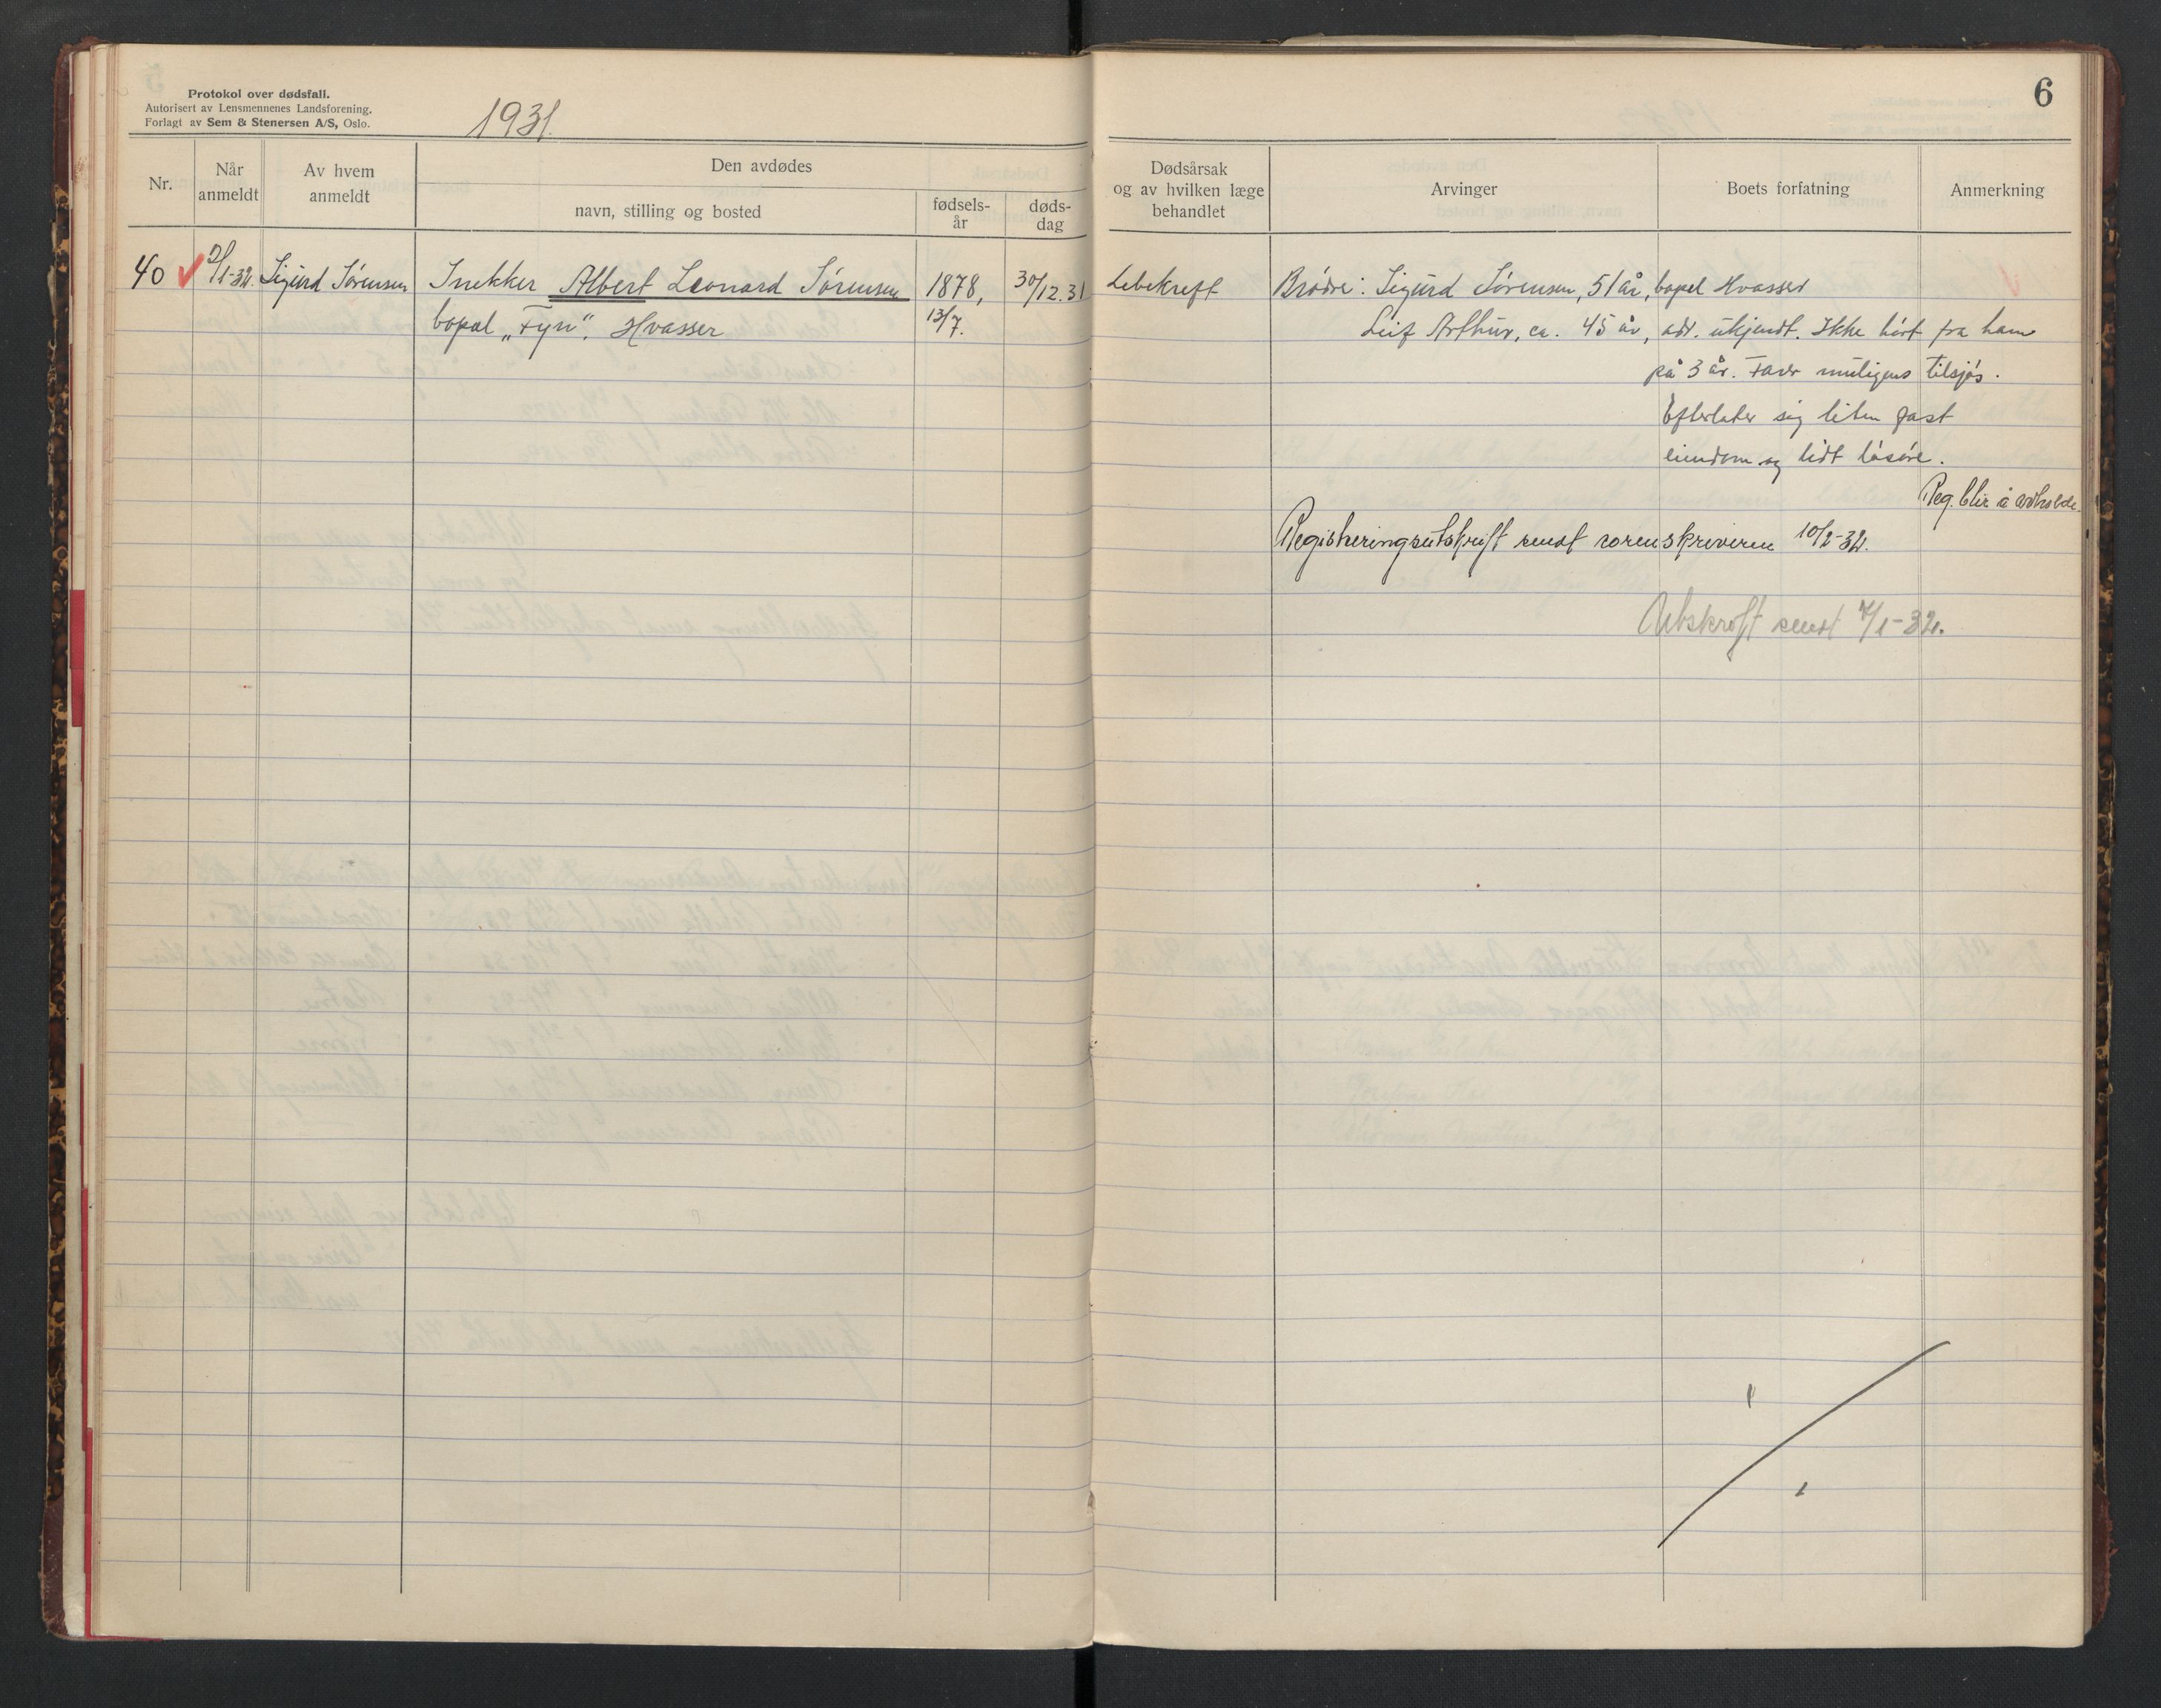 Protokol over dødsfall.
Autorisert av Lensmennenes Landsforening.
Forlagt av Sem & Stenersen A/S, Oslo.
1931.
Nr.
Når anmeldt
Av hvem anmeldt
Den avdødes
navn, stilling og bosted
fødsels-år
døds-dag
40 2/1-32. Sigurd Sørensen Snekker Albert Leonard Sørensen 1878, 30/12.31
bopæl „Fyn“, Hvasser 13/7.
6
Dødsårsak og av hvilken læge behandlet
Arvinger
Boets forfatning
Anmerkning
Lebekreft Brødre: Sigurd Sørensen, 51 år, bopel Hvasser
Leif Arthur, ca. 45 år, adr. ukjendt. Ikke hørt fra ham
på 3 år. Farer muligens tilsjøs.
Efterlater sig liten fast
eiendom og lidt løsøre.
Reg. blir å avholde.
Registreringsutskrift sendt sorenskriveren 10/2-32.
Utskrift sendt 4/1-32.